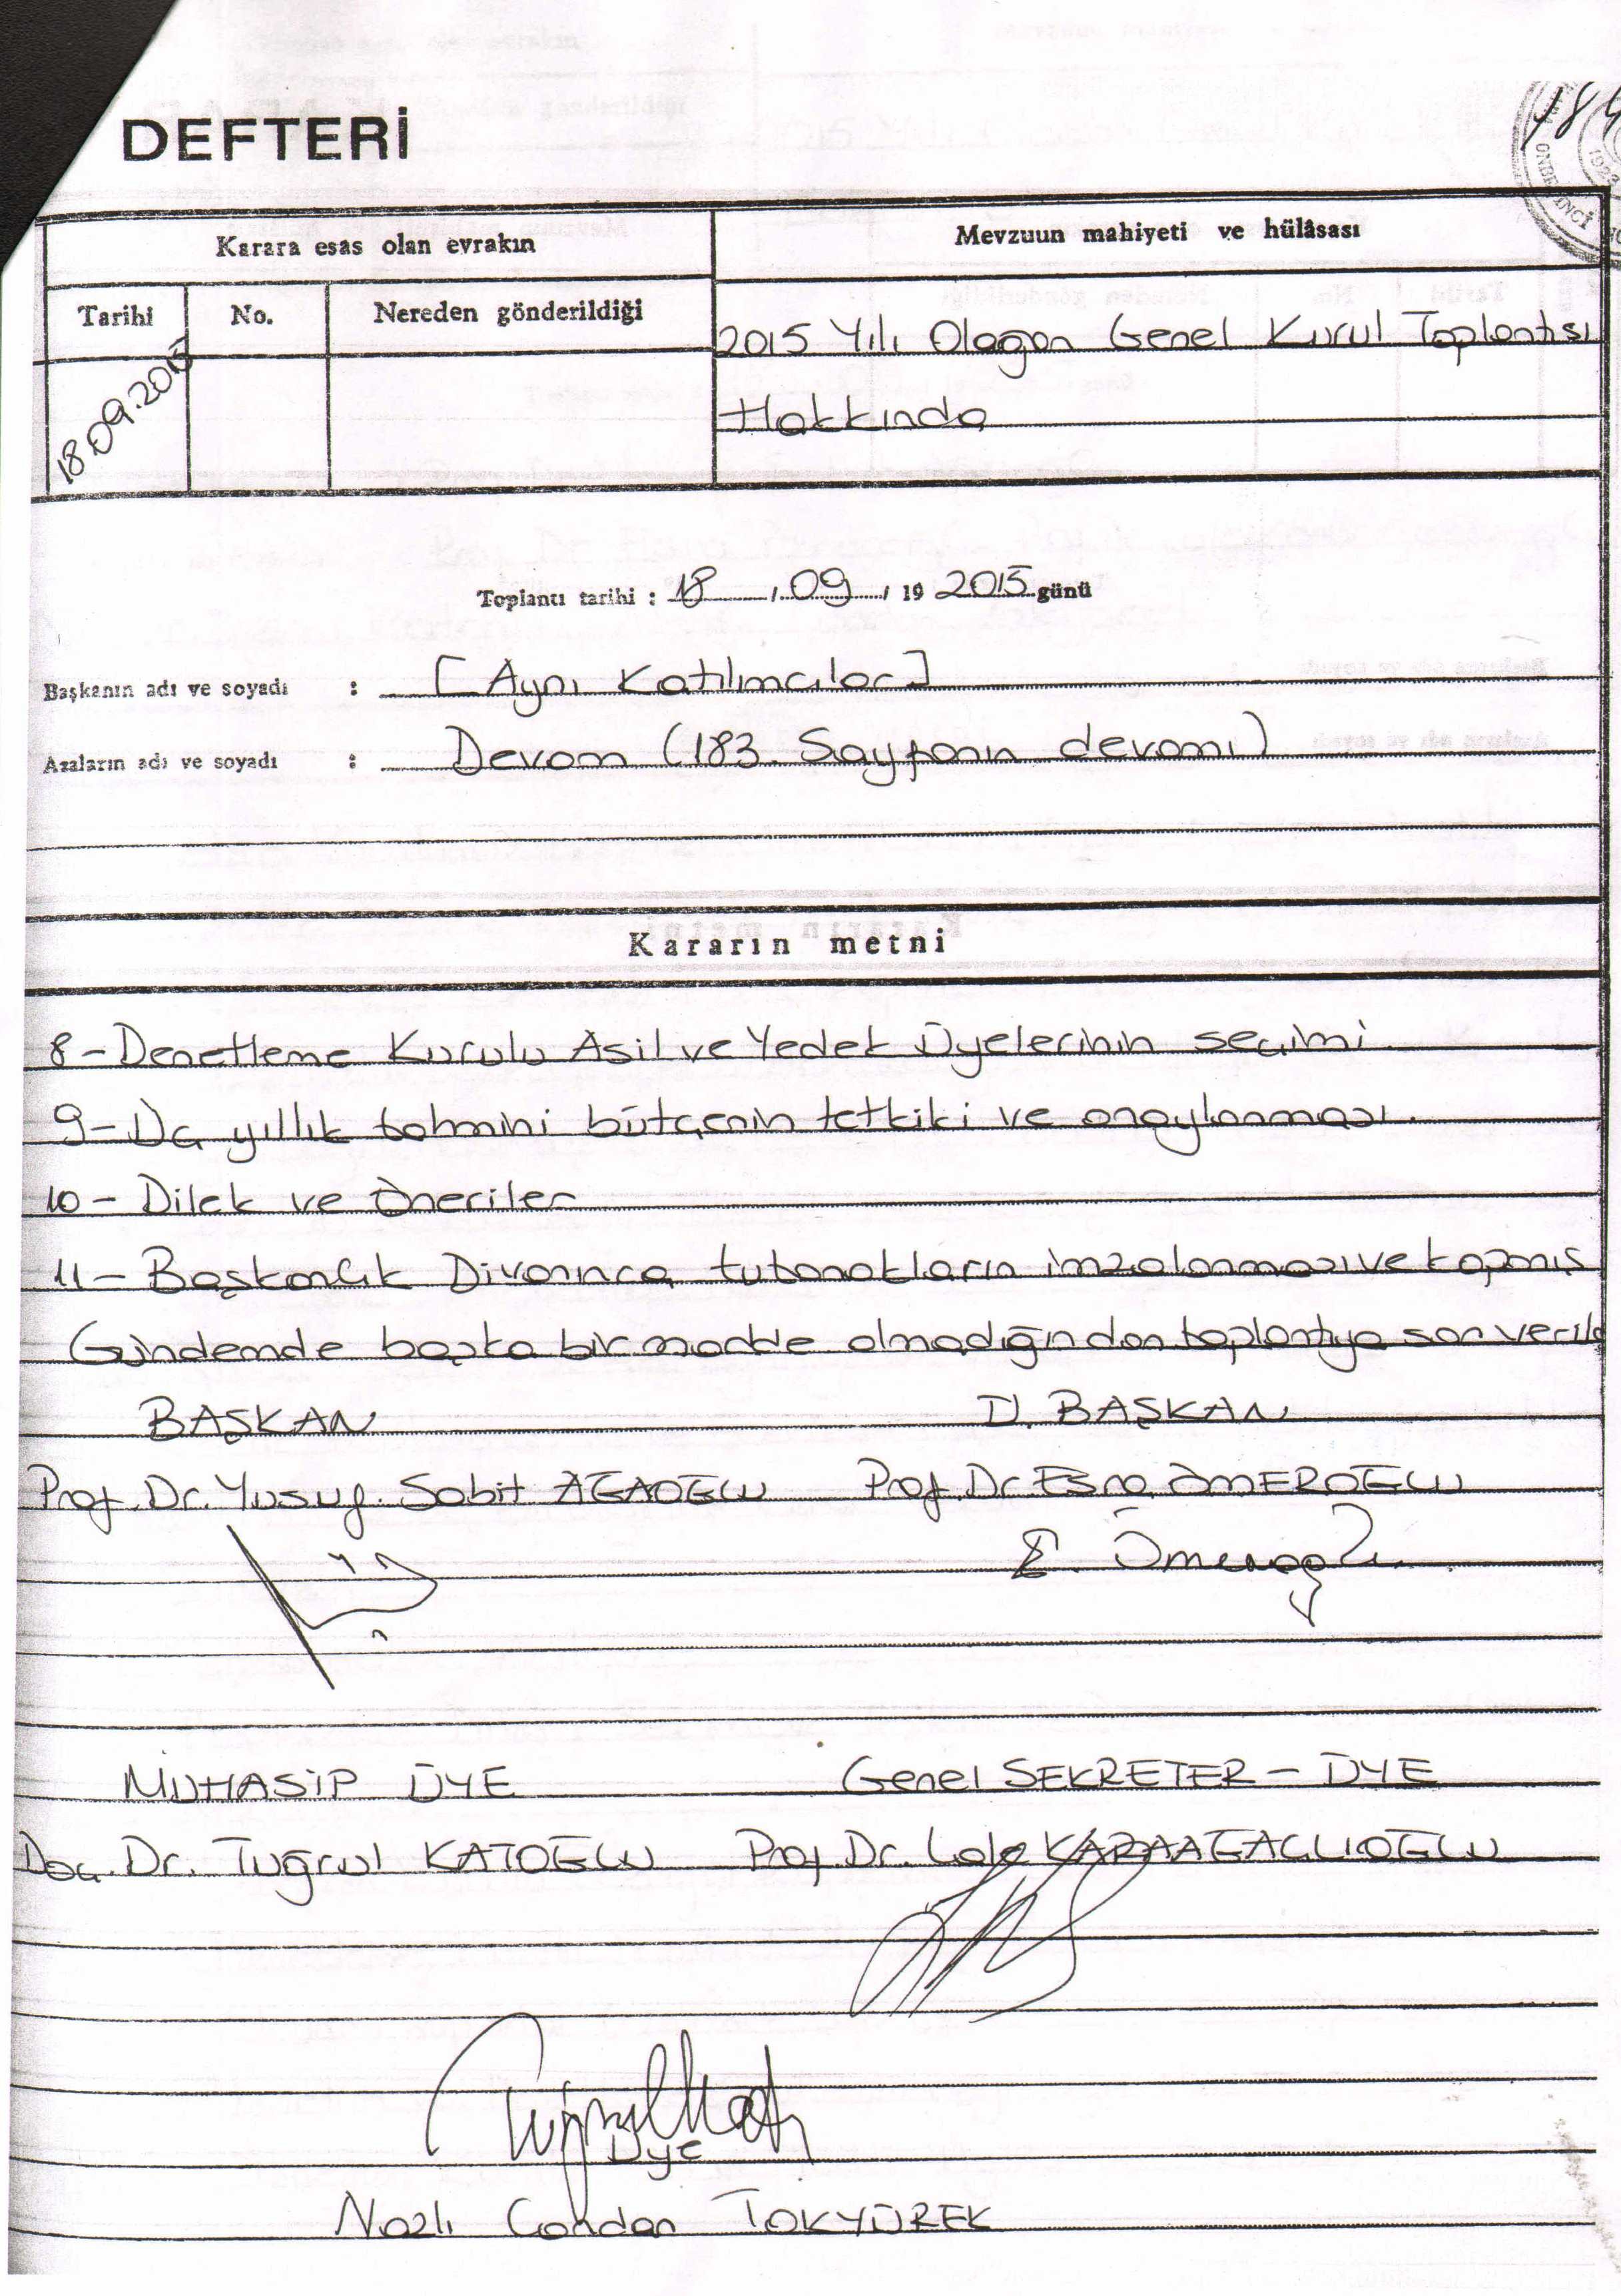 184
ONBEŞİNCİ
DEFTERİ
Karara esas olan evrakın
Mevzuun mahiyeti ve hülâsası
Tarihi
No.
Nereden gönderildiği
18.09.2015
2015 Yılı Olağan Genel Kurul Toplantısı
Hakkında
Toplantı tarihi : 18 / 09 / 19 2015 günü
Başkanın adı ve soyadı : [Aynı Katılımcılar]
Azaların adı ve soyadı : Devam (183. Sayfanın devamı)
Kararın metni
8 - Denetleme Kurulu Asil ve Yedek Üyelerinin seçimi.
9 - Üç yıllık tahmini bütçenin tetkiki ve onaylanması.
10 - Dilek ve Öneriler
11 - Başkanlık Divanınca tutanakların imzalanması ve kapanış
Gündemde başka bir madde olmadığından toplantıya son verild
BAŞKAN
II. BAŞKAN
Prof. Dr. Yusuf Sabit AĞAOĞLU
Prof. Dr. Esra ÖMEROĞLU
E. Ömeroğlu
MUHASİP ÜYE
Genel SEKRETER - ÜYE
Doç. Dr. Tuğrul KATOĞLU
Prof. Dr. Lale KARAAĞAÇLIOĞLU
Üye
Nazlı Candan TOKYÜREK